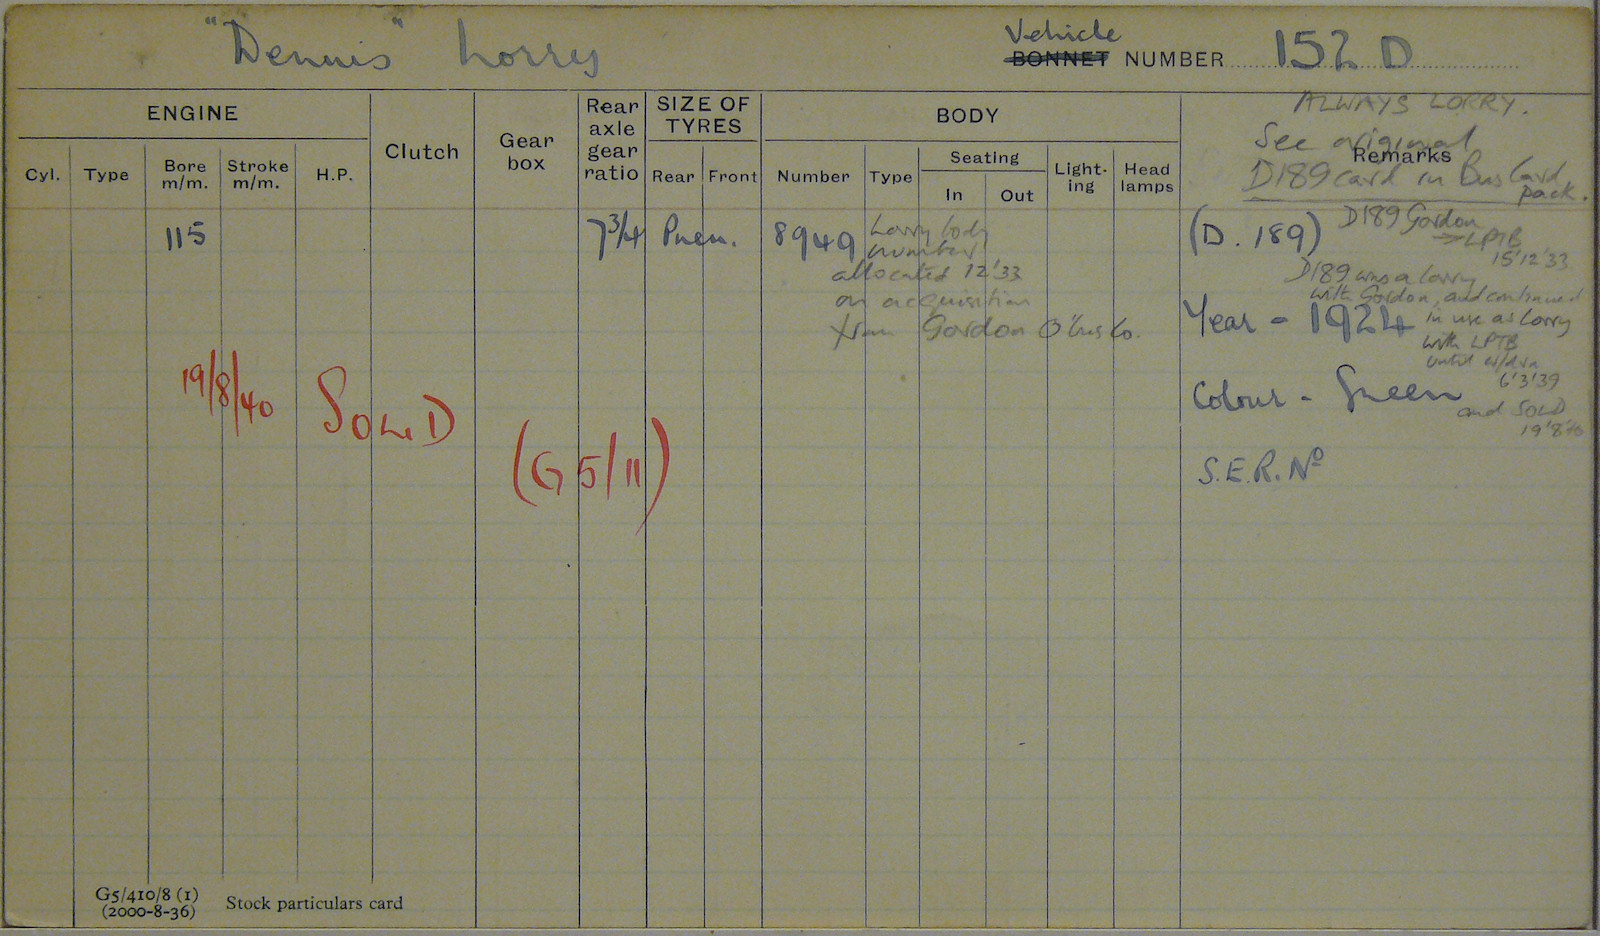 "Dennis" Lorry
Vehicle
BONNET NUMBER 152 D
ENGINE
Clutch
Gear box
Rear axle gear ratio
SIZE OF TYRES
BODY
Remarks
Cyl. Type Bore m/m. Stroke m/m. H.P.
Rear Front
Number Type
Seating
In Out
Light-ing
Head lamps
ALWAYS LORRY.
See original
D189 card in Bus Card
pack.
115 7 3/4 Pneu. 8949 Lorry body
number
allocated 12'33
on acquisition
from Gordon O'bus Co.
(D. 189) D189 Gordon
→ LPTB
15'12'33
D189 was a lorry
with Gordon, and continued
in use as lorry
with LPTB
until w/dn
6'3'39
and SOLD
19'8'40
Year - 1924
Colour - Green
S.E.R. Nº
19/8/40 SOLD
(G5/11)
G5/410/8 (1)
(2000-8-36)
Stock particulars card